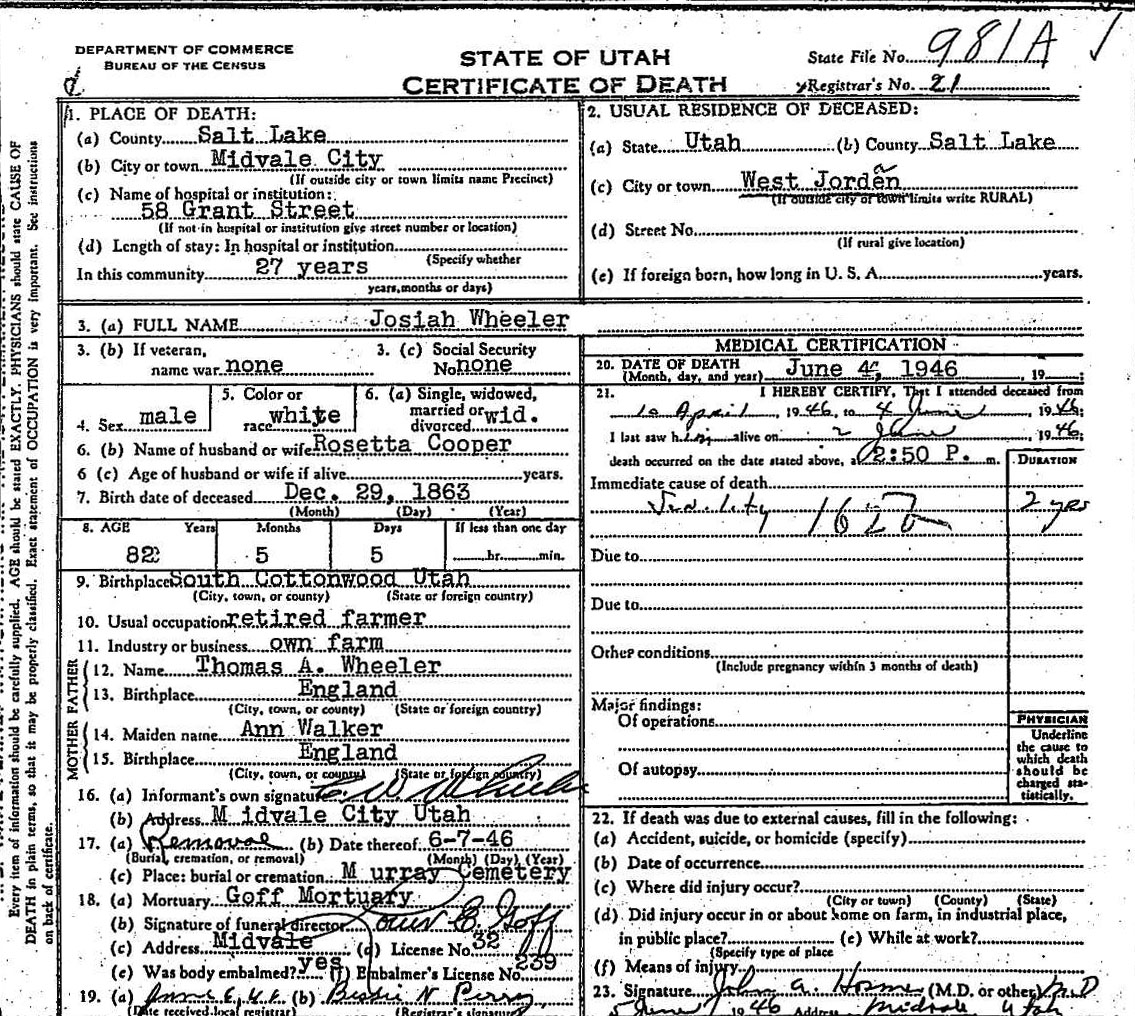 DEPARTMENT OF COMMERCE
BUREAU OF THE CENSUS
STATE OF UTAH
CERTIFICATE OF DEATH
State File No. 981A ✓
Registrar's No. 21
1. PLACE OF DEATH:
(a) County Salt Lake
(b) City or town Midvale City
(If outside city or town limits name Precinct)
(c) Name of hospital or institution:
58 Grant Street
(If not in hospital or institution give street number or location)
(d) Length of stay: In hospital or institution
(Specify whether
In this community 27 years
years, months or days)
2. USUAL RESIDENCE OF DECEASED:
(a) State Utah (b) County Salt Lake
(c) City or town West Jorden a
(If outside city or town limits write RURAL)
(d) Street No.
(If rural give location)
(e) If foreign born, how long in U. S. A. years.
3. (a) FULL NAME Josiah Wheeler
3. (b) If veteran, name war none
3. (c) Social Security No none
4. Sex male
5. Color or race white
6. (a) Single, widowed, married or divorced wid.
6. (b) Name of husband or wife Rosetta Cooper
6 (c) Age of husband or wife if alive years.
7. Birth date of deceased Dec. 29, 1863
(Month) (Day) (Year)
8. AGE Years Months Days If less than one day
82 5 5 hr. min.
9. Birthplace South Cottonwood Utah
(City, town, or county) (State or foreign country)
10. Usual occupation retired farmer
11. Industry or business own farm
FATHER
12. Name Thomas A. Wheeler
13. Birthplace England
(City, town, or county) (State or foreign country)
MOTHER
14. Maiden name Ann Walker
15. Birthplace England
(City, town, or county) (State or foreign country)
16. (a) Informant's own signature Wheeler
(b) Address M idvale City Utah
17. (a) Removal (b) Date thereof 6-7-46
(Burial, cremation, or removal) (Month) (Day) (Year)
(c) Place: burial or cremation M urray Cemetery
18. (a) Mortuary Goff Mortuary
(b) Signature of funeral director E. Goff
(c) Address Midvale (d) License No. 32
(e) Was body embalmed? yes (f) Embalmer's License No. 239
19. (a) June (b) Bessie N Perry
(Date received local registrar) (Registrar's signature)
MEDICAL CERTIFICATION
20. DATE OF DEATH June 4, 1946
(Month, day, and year) , 19
21. I HEREBY CERTIFY, That I attended deceased from
10 April, 1946, to 4 June, 1946;
I last saw h alive on 2 June, 1946;
death occurred on the date stated above, a 2:50 P. m.
DURATION
Immediate cause of death
162 2 yrs
Due to
Due to
Other conditions
(Include pregnancy within 3 months of death)
Major findings:
Of operations
Of autopsy
PHYSICIAN
Underline
the cause to
which death
should be
charged sta-
tistically.
22. If death was due to external causes, fill in the following:
(a) Accident, suicide, or homicide (specify)
(b) Date of occurrence
(c) Where did injury occur?
(City or town) (County) (State)
(d) Did injury occur in or about home on farm, in industrial place,
in public place? (e) While at work?
(Specify type of place
(f) Means of injury
23. Signature John A. (M.D. or other) M.D
5 June 1946 Address Midvale Utah
Every item of information should be carefully supplied. AGE should be stated EXACTLY. PHYSICIANS should state CAUSE OF
DEATH in plain terms, so that it may be properly classified. Exact statement of OCCUPATION is very important. See instructions
on back of certificate.